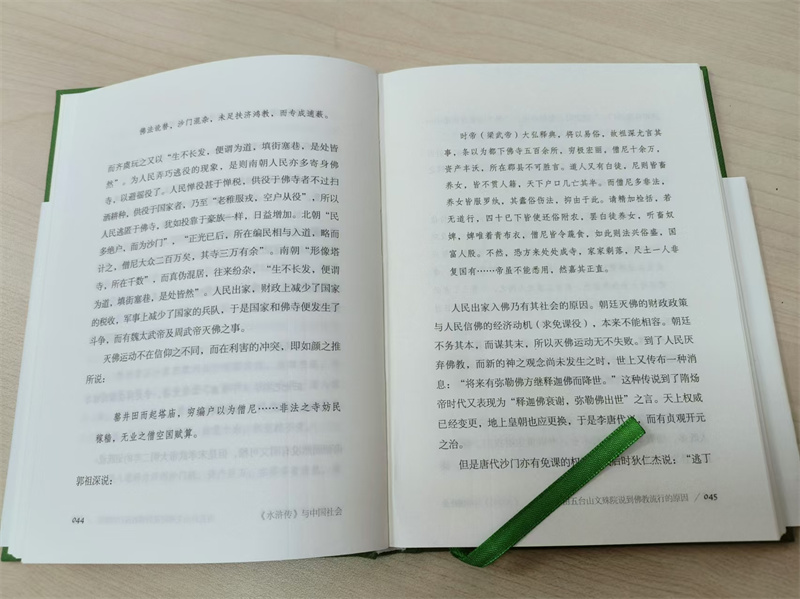 佛法讹替，沙门混杂，未足扶济鸿教，而专成逋薮。
而齐虞玩之又以“生不长发，便谓为道，填街塞巷，是处皆
然”。为人民弄巧逃役的现象，是则南朝人民亦多寄身佛
寺，以避徭役了。人民惮役甚于惮税，供役于佛寺者不过扫
洒耕种，供役于国家者，乃至“老稚服戎，空户从役”，所以
人民逃匿于佛寺，犹如投靠于豪族一样，日益增加。北朝“民
多绝户，而为沙门”，“正光已后，所在编民相与入道，略而
计之，僧尼大众二百万矣，其寺三万有余”。南朝“形像塔
寺，所在千数”，而真伪混居，往来纷杂，“生不长发，便谓
为道，填街塞巷，是处皆然”。人民出家，财政上减少了国家
的税收，军事上减少了国家的兵队，于是国家和佛寺便发生了
斗争，而有魏太武帝及周武帝灭佛之事。
灭佛运动不在信仰之不同，而在利害的冲突，即如颜之推
所说：
罄井田而起塔庙，穷编户以为僧尼……非法之寺妨民
稼穑，无业之僧空国赋算。
郭祖深说：
044
《水浒传》与中国社会
时帝（梁武帝）大弘释典，将以易俗，故祖深尤言其
事，条以为都下佛寺五百余所，穷极宏丽，僧尼十余万，
资产丰沃，所在郡县不可胜言。道人又有白徒，尼则皆畜
养女，皆不贯人籍，天下户口几亡其半。而僧尼多非法，
养女皆服罗纨，其蠹俗伤法，抑由于此。请精加检括，若
无道行，四十已下皆使还俗附农，罢白徒养女，听畜奴
婢，婢唯着青布衣，僧尼皆令蔬食，如此则法兴俗盛，国
富人殷。不然，恐方来处处成寺，家家剃落，尺土一人非
复国有……帝虽不能悉用，然嘉其正直。
人民出家入佛乃有其社会的原因。朝廷灭佛的财政政策
与人民信佛的经济动机（求免课役），本来不能相容。朝廷
不务其本，而谋其末，所以灭佛运动无不失败。到了人民厌
弃佛教，而新的神之观念尚未发生之时，世上又传布一种消
息：“将来有弥勒佛方继释迦佛而降世。”这种传说到了隋炀
帝时代又表现为“释迦佛衰谢，弥勒佛出世”之言。天上权威
已经变更，地上皇朝也应更换，于是李唐代兴，而有贞观开元
之治。
但是唐代沙门亦有免课的权 后时狄仁杰说：“逃丁
五台山文殊院说到佛教流行的原因
045